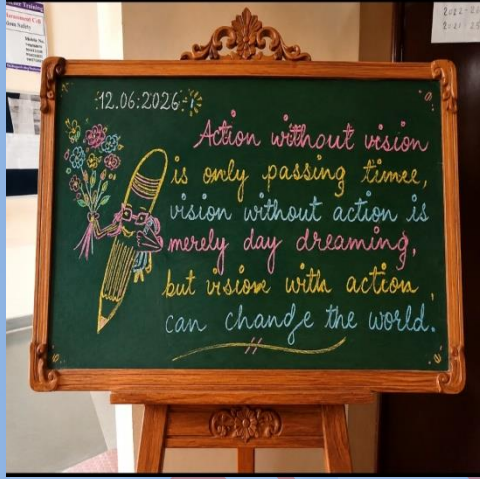 12.06.2026
Action without vision
is only passing timee,
vision without action is
merely day dreaming,
but vision with action,
can change the world.